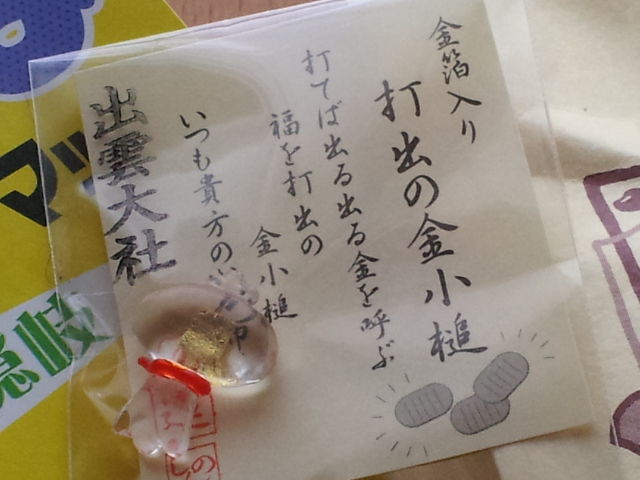 金箔入り
打出の金小槌
打てば出る出る金を呼ぶ
福を打出の
金小槌
いつも貴方の
中
出雲大社
マッ
隠岐